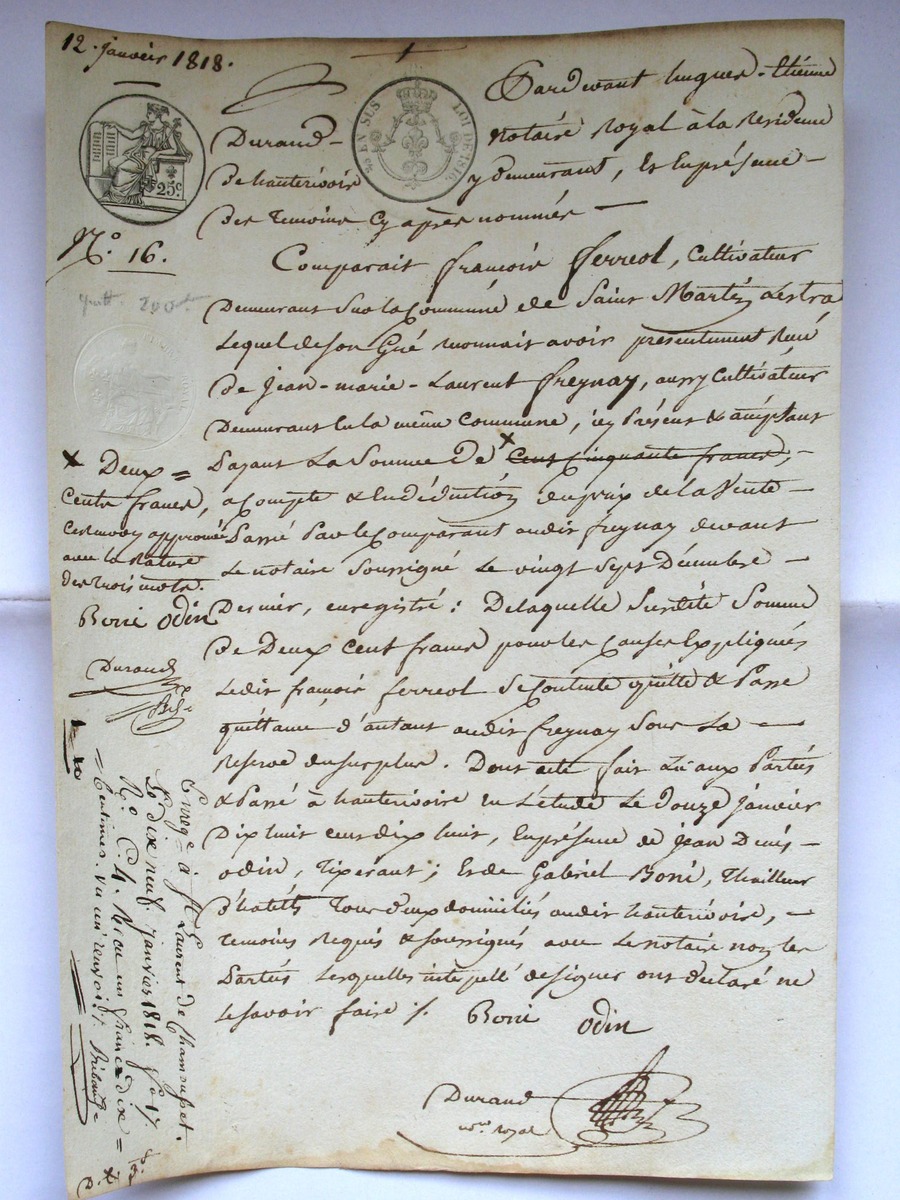 12. Janvier 1818.
Pardevant hugues-Etienne
Durand - notaire Royal à la Résidence
de hauterivoire y demeurant, Et En présence -
des temoins Cy après nommés -
25 EN SUS
LOI DE 1816.
25c.
No. 16.
Comparait françois ferreol, Cultivateur
Demeurant Sur la Commune de Saint Martin Lestra
Lequel de son Gré reconnait avoir présentement Reçu
de Jean-marie-Laurent freynay, aussy Cultivateur
Demeurant En la même Commune, icy Présent & acceptant
payant La Somme De x Cent Cinquante francs, -
acompte & En déduction du prix de la Vente -
Passé Par le Comparant audit freynay devant
Le notaire Soussigné Le vingt Sept Décembre -
Dernier, enregistré : De laquelle Susdite Somme
de Deux cent francs pour les Causes Expliquées
Ledit françois ferreol Se Contente quitte & Passe
quittance d'autant audit freynay Sous La -
Reserve du surplus. Dont acte fait Lu aux Parties
& Passé à hauterivoire En L'étude Le Douze Janvier
Dix huit cent dix huit, En présence de Jean Denis -
odin, Tixerant ; Et de Gabriel Boné, Thailleur
d'habits Tous deux domiciliés audit hauterivoire, -
temoins Requis & soussignés avec Le notaire non les
Parties Lesquelles interpellé de signer ont déclaré ne
Le savoir faire /.
Boné Odin
Durand
nore royal
x Deux =
Cents francs,
Ce renvoy approuvé
avec la Rature
des trois mots.
Boné Odin
Durand
Enregé à St Laurent de Chamousset.
Le dix neuf janvier 1818. fo 17.
Ro. C. 4. Recu un franc dix =
Centimes. vu un renvoi /.